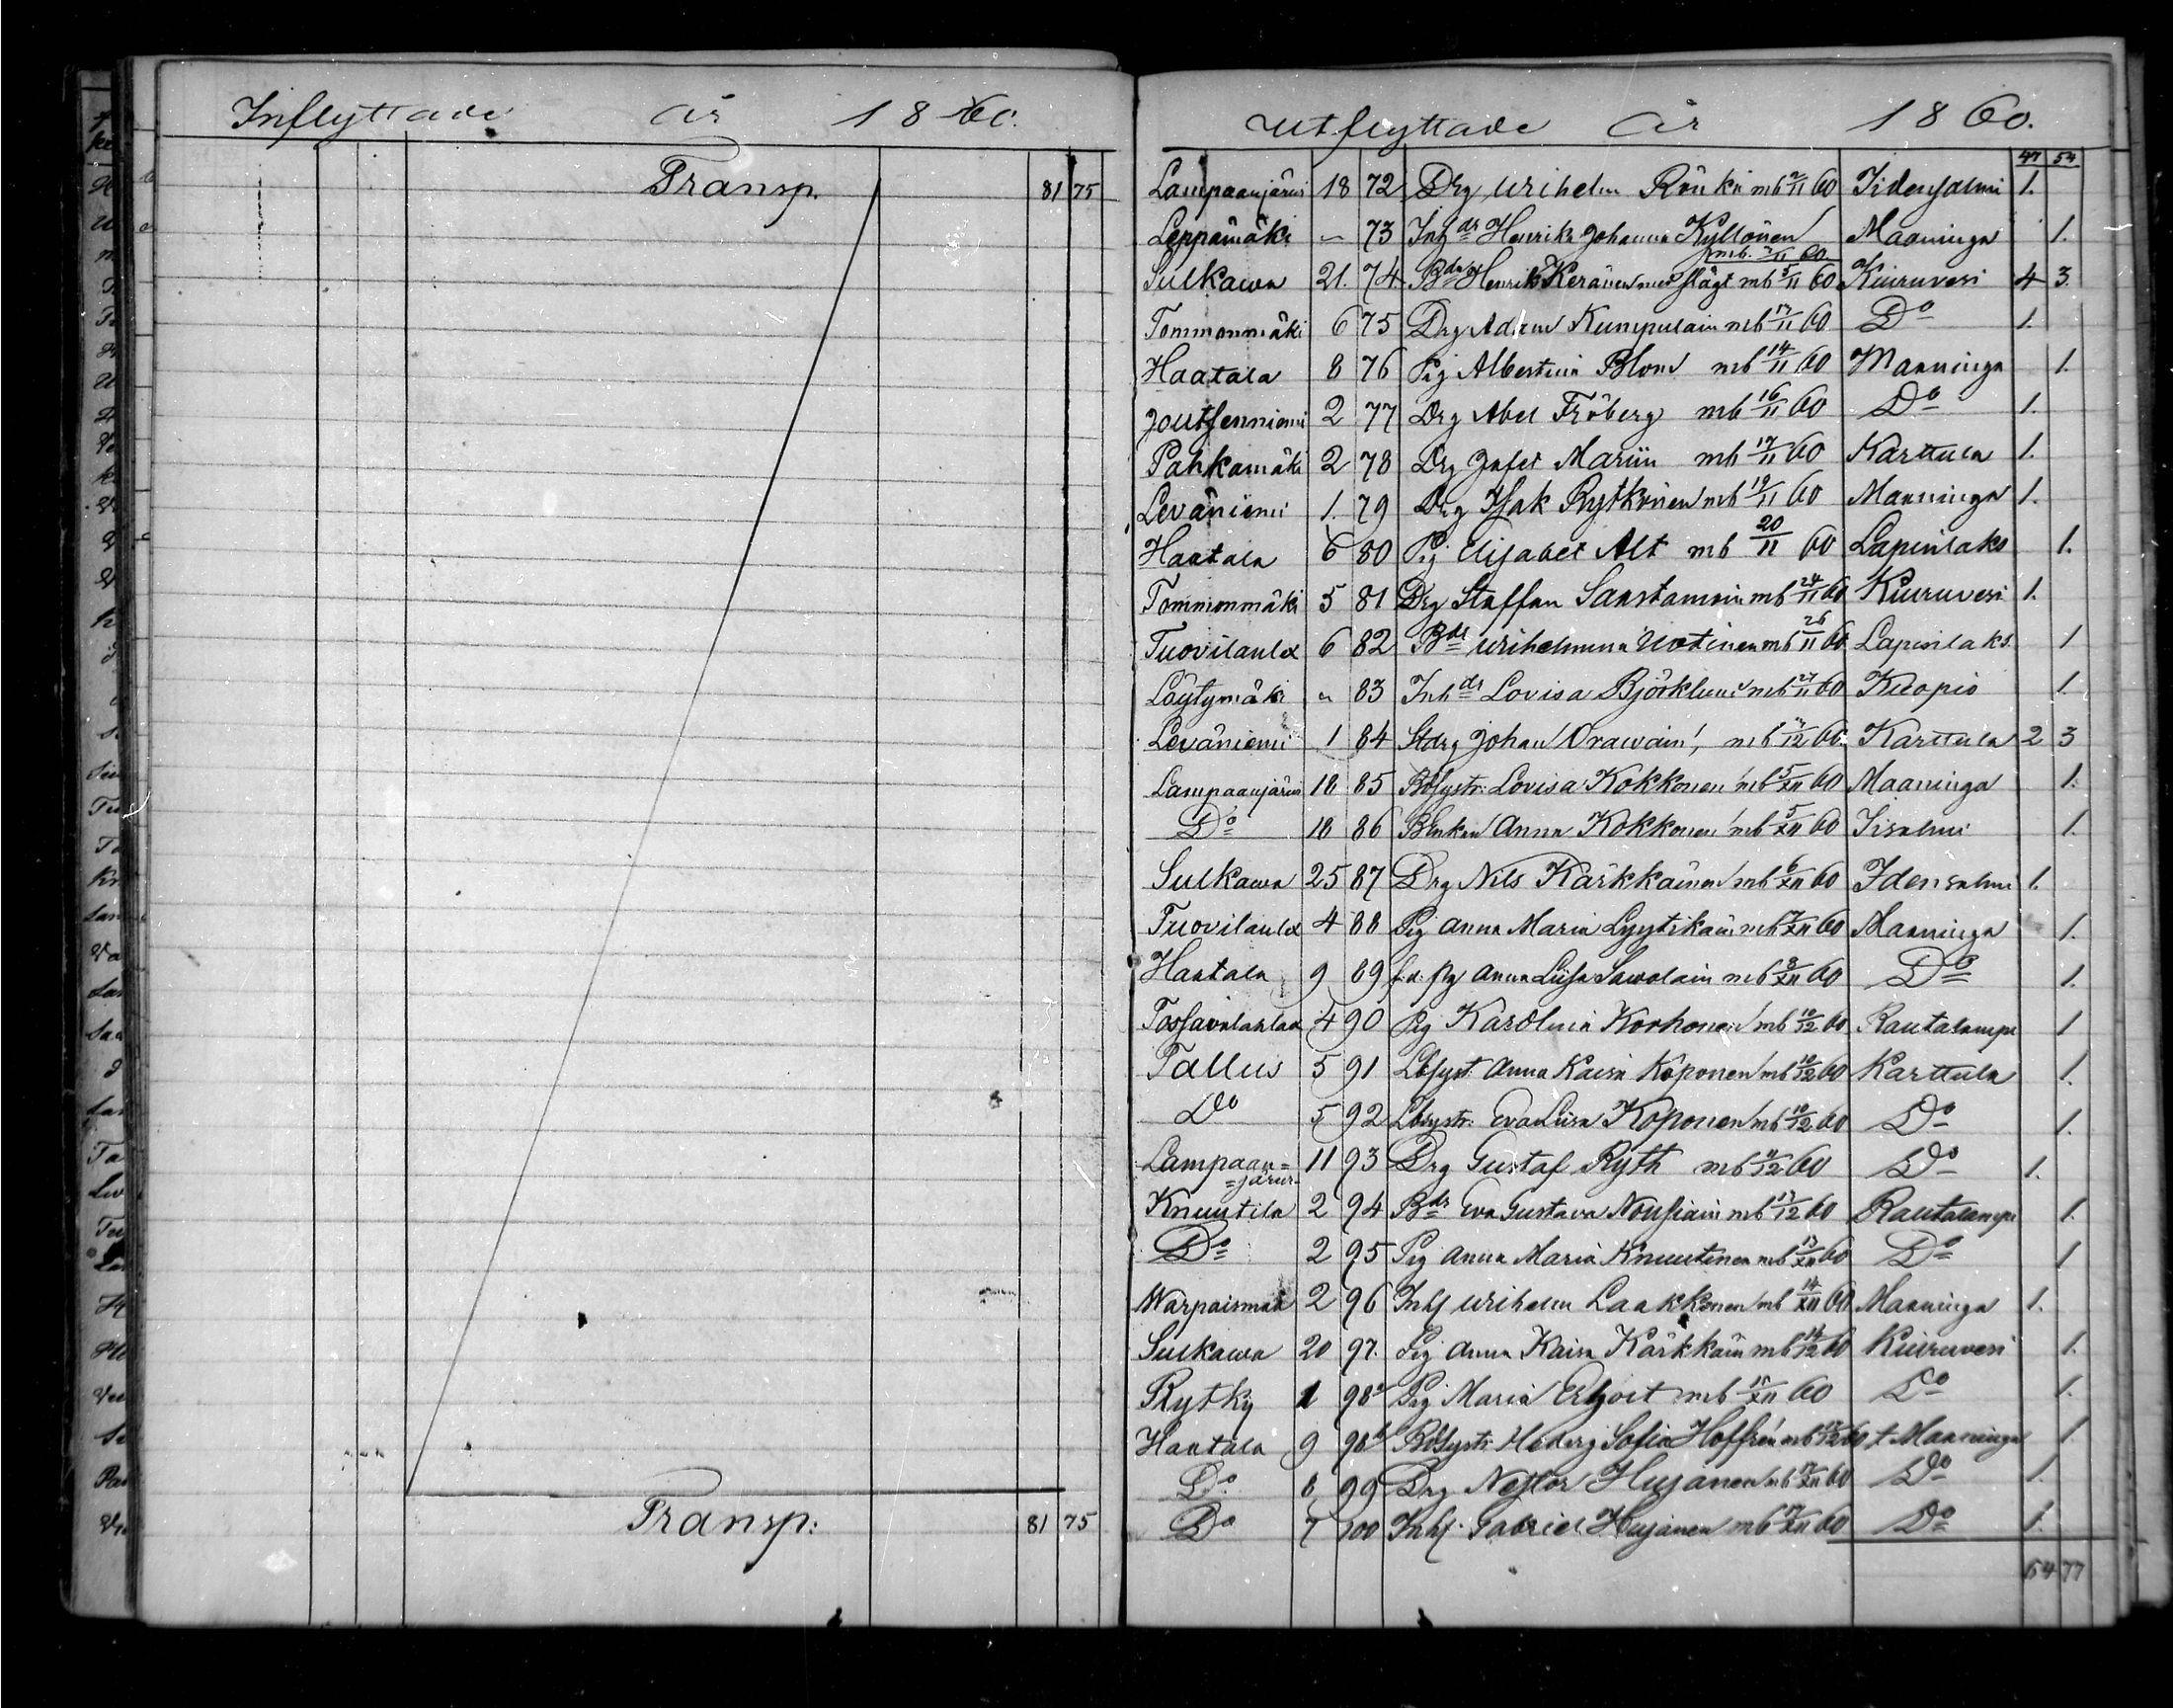 Inflyttade år 1860.
Transp. 81 75
Transp: 81 75
Utflyttade År 1860.
47 54
Lampaanjärvi 18 72 Drg Wilhelm Rönkö mb 2/11 60 Idensalmi 1.
Leppämäki 73 Inh dr Henrika Johanna Kyllönen Maaninga 1.
mb. 60
Sulkawa 21. 74 Henrik Keränen med flägt mb 5/11 60 Kiuruvesi 4 3.
Tommonmäki 6 75 Drg Adam Kumpulain mb 17/11 60 Do 1.
Haatala 8 76 Pig Albertina Blom mb 14/11 60 Maaninga 1.
Joutsenniemi 2 77 Drg Abel Fröberg mb 16/11 60 Do 1.
Pahkamäki 2 78 Drg Jafet Mariin mb 17/11 60 Karttula 1.
Leväniemi 1. 79 Drg Isak Rytkönen mb 19/11 60 Maaninga 1.
Haatala 6 80 Pig Elisabet Alt mb 20/11 60 Lapinlaks 1.
Tommonmäki 5 81 Drg Staffan Saastamoin mb 24/11 60 Kiuruvesi 1.
Tuovilanlax 6 82 Bdr Wilhelmina Uotinen mb 26/11 60 Lapinlaks. 1
Löytymäki " 83 Inh dr Lovisa Björklund mb 27/11 60 Kuopio 1.
Leväniemi 1 84 Johan Orawain, mb 60. Karttula 2 3
Lampaanjärvi 18 85 Lovisa Kokkonen mb 5/XII 60 Maaninga 1.
Do 18 86 Benkan Anna Kokkonen mb 5/XII 60 Iisalmi 1.
Sulkawa 25 87 Drg Nils Kärkkäinen mb 6/XII 60 Idensalmi 1.
Tuovilanlax 4 88 Pig Anna Maria Lyytikäin mb 7/XII 60 Maaninga 1.
Haatala 9 89 f.d. pig Anna Liisa Sawolain mb 8/XII 60 Do 1.
Tossavanlahlax 4 90 Pig Karolina Korhonen mb 10/12 60 Rautalampi 1
Tallus 5 91 Lbsyst. Anna Kaisa Koponen mb 10/12 60 Karttula 1.
Do 5 92 Lbsystr. Eva Liisa Koponen mb 10/12 60 Do 1.
Lampaan=
=järvi 11 93 Drg Gustaf Ryth mb 11/12 60 Do 1.
Knuutila 2 94 Bdr Eva Gustava Nousiain mb 13/12 60 Rautalampi 1.
Do 2 95 Pig Anna Maria Knuutinen mb 13/XII 60 Do 1
Warpaismäk 2 96 Inhs Wilhelm Laakkonen mb 14/XII 60 Maaninga 1.
Sulkawa 20 97. Pig Anna Kaisa Kärkkäin mb 14/12 60 Kiuruvesi 1.
Rytky 1 98a Pig Maria mb 15/XII 60 Do 1.
Haatala 9 98b Hedvig Sofia Hoffrén mb 60 t. Maaninga 1
Do 6 99 Drg Nestor Hujanen mb 60 Do 1.
Do 7 100 Inhs. Gabriel Hujanen mb 60 Do 1.
64 77